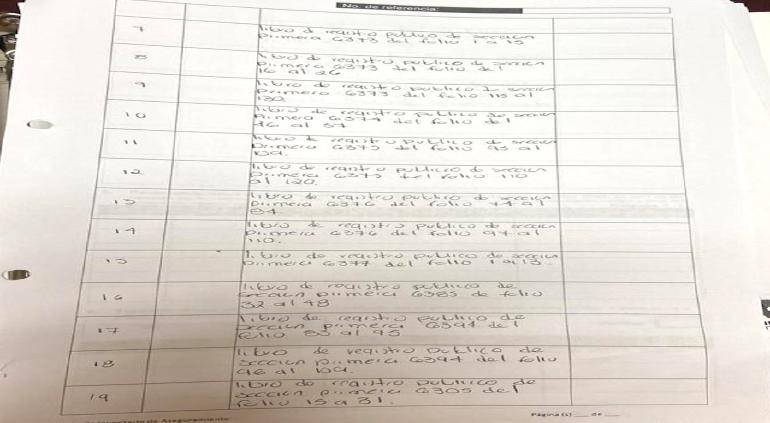 No. de referencia:
7
libro de registro publico de seccion
primera 6373 del folio 1 a 15
8
libro de registro publico de seccion
primera 6373 del folio del
16 al 26
9
libro de registro publico de seccion
primera 6373 del folio 115 al
130.
10
libro de registro publico de seccion
primera 6374 del folio del
46 al 57
11
libro de registro publico de seccion
primera 6375 del folio 95 al
109.
12
libro de registro publico de seccion
primera 6375 del folio 110
al 120.
13
libro de registro publico de seccion
primera 6376 del folio 74 al
84.
14
libro de registro publico de seccion
primera 6376 del folio 97 al
110.
15
libro de registro publico de seccion
primera 6377 del folio 1 al 13.
16
libro de registro publico de
seccion primera 6385 de folio
32 al 48
17
libro de registro publico de
seccion primera 6394 del
folio 83 al 95
18
libro de registro publico de
seccion primera 6394 del folio
96 al 109.
19
libro de registro publico de
seccion primera 6305 del
folio 15 a 31.
de Aseguramiento
Página (s) ___ de ___